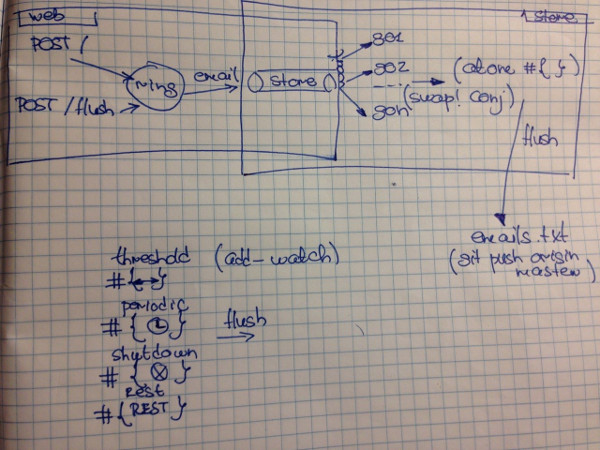 web
store
POST /
ring
POST /flush
email
store
go1
go2
....
gon
(atom #{ })
(swap! conj)
flush
emails.txt
(git push origin
master)
threshold (add-watch)
#{ }
periodic
#{ } flush
shutdown
#{ }
REST
#{REST}